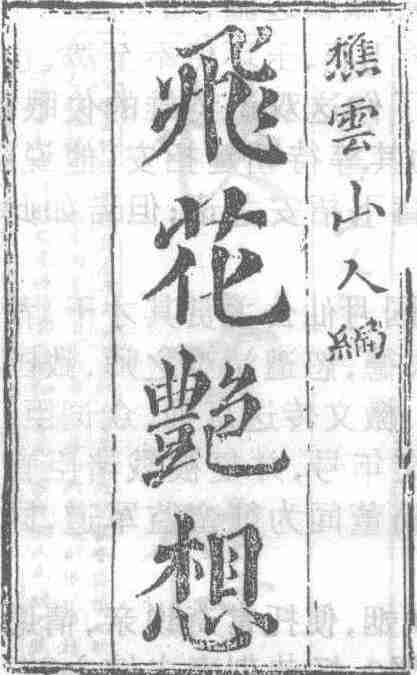 樵雲山人編
飛花艶想